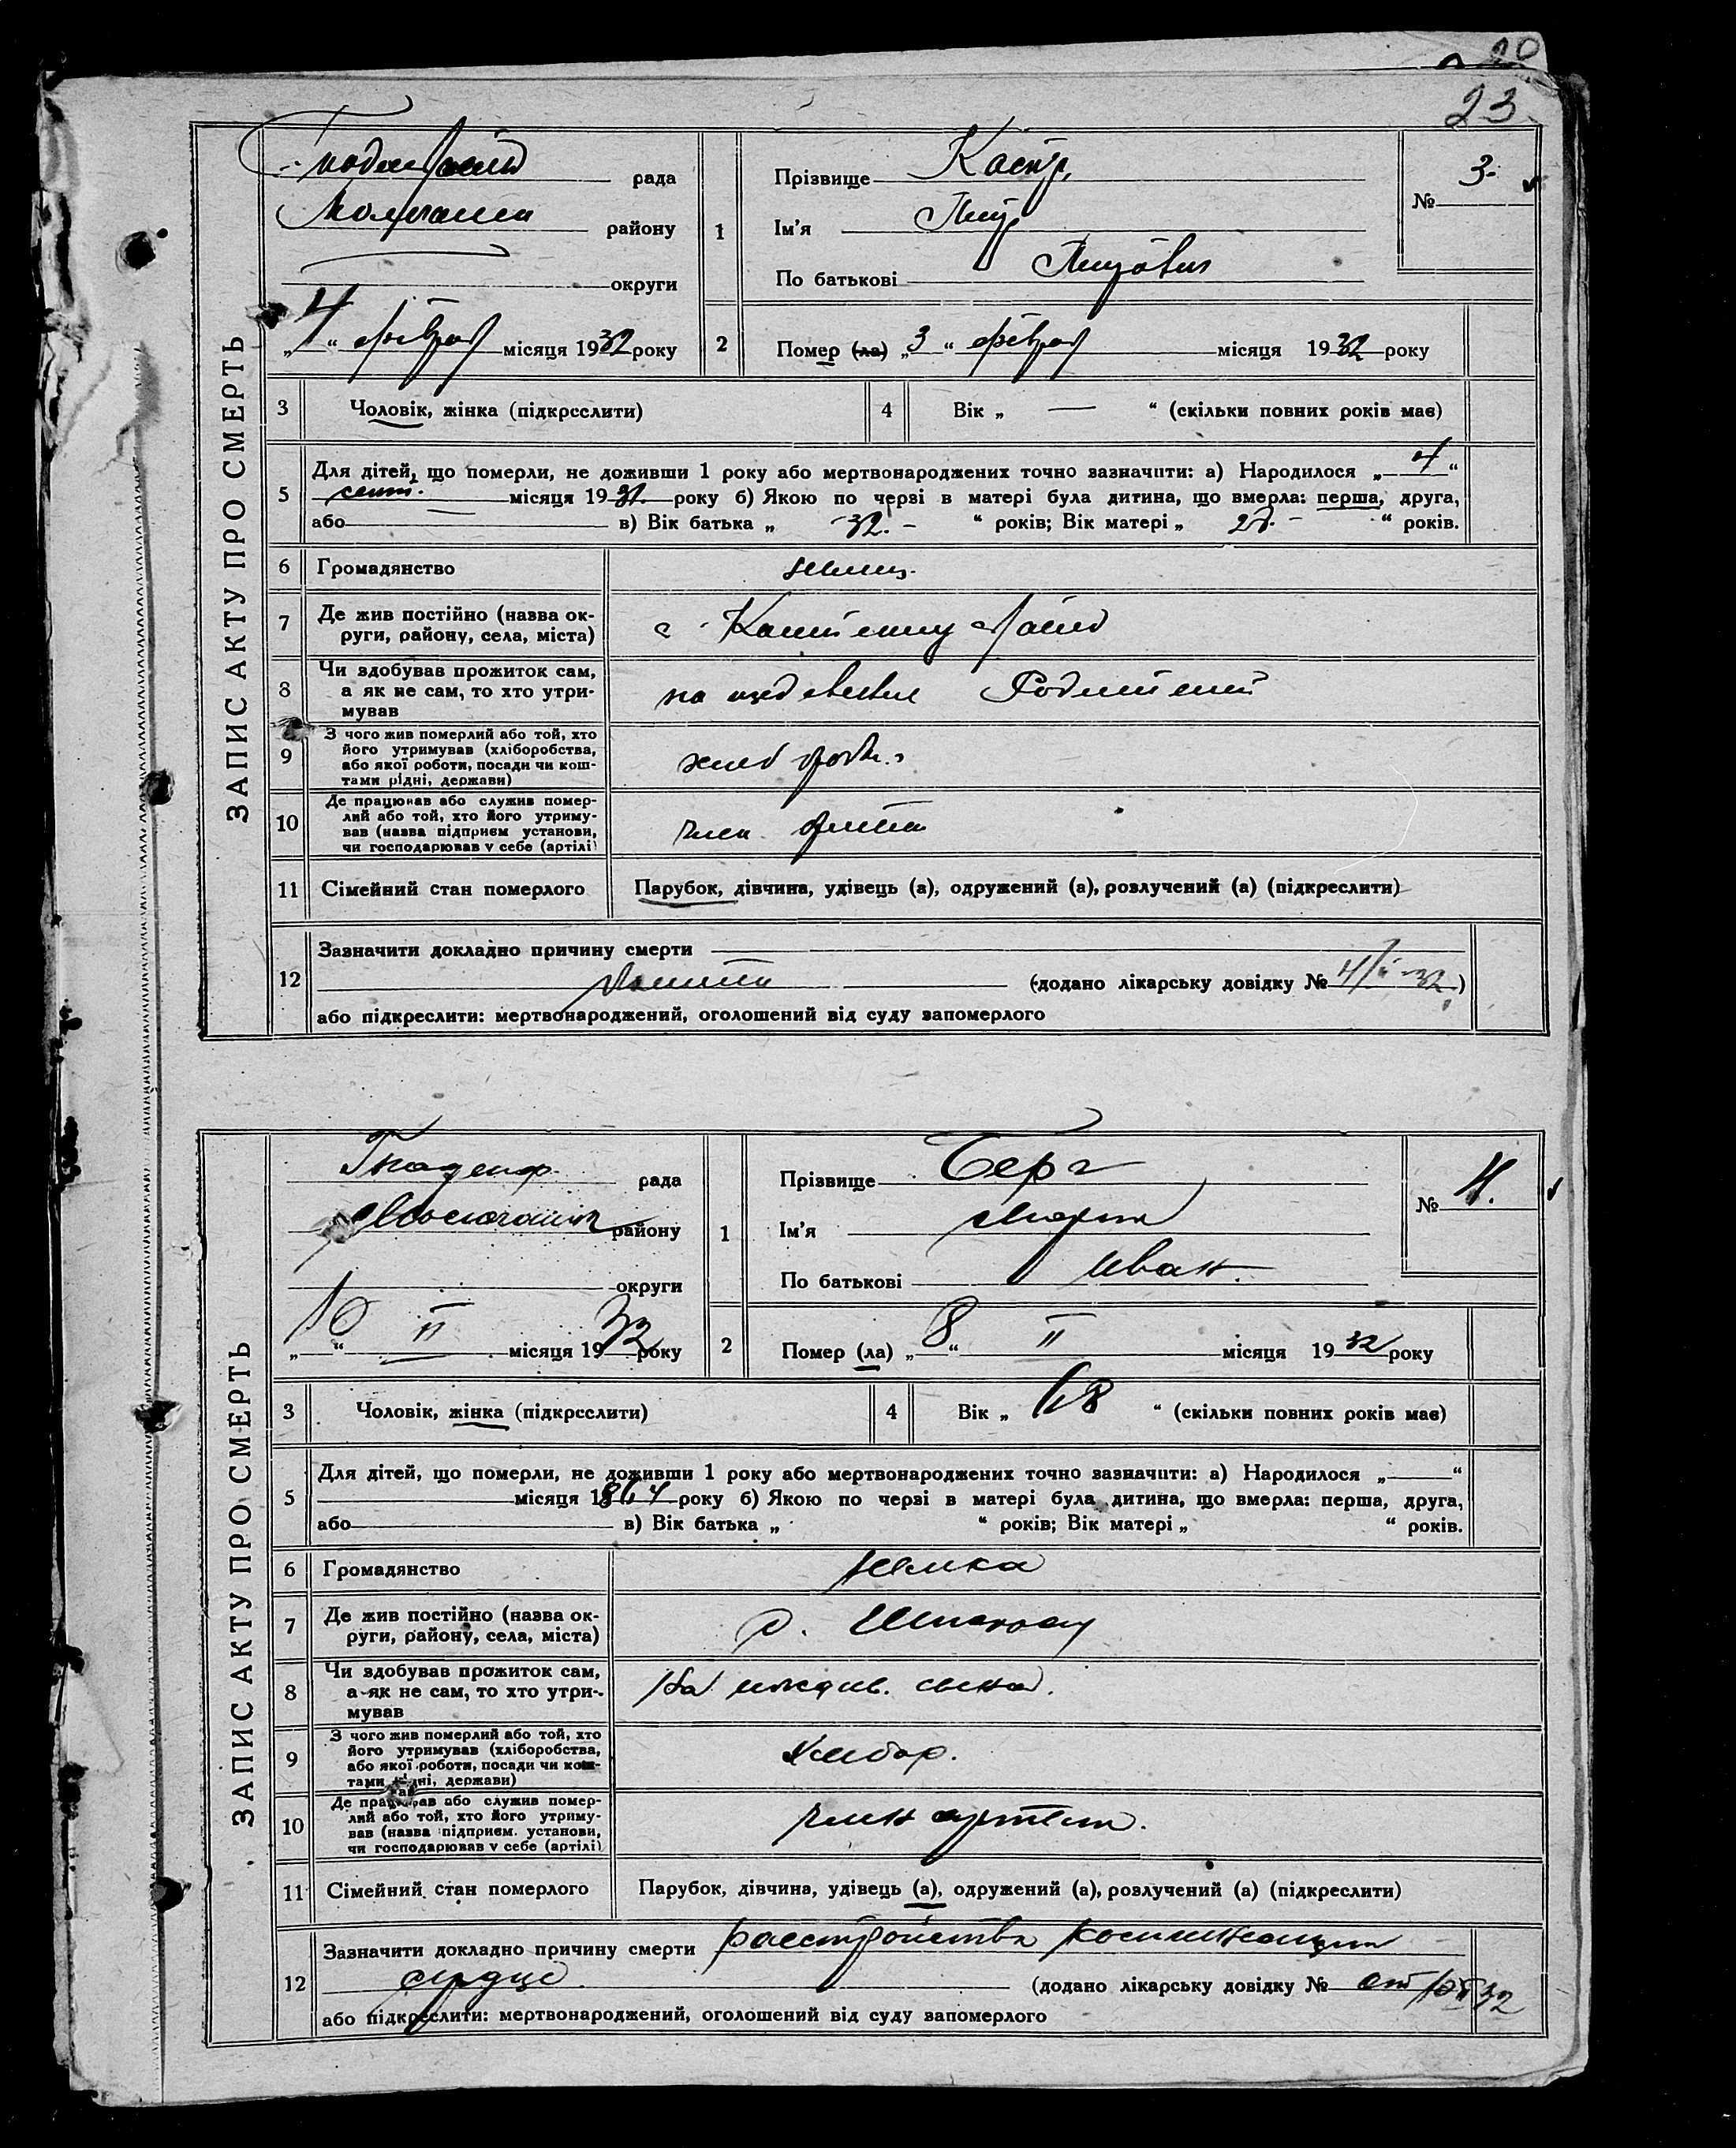 23
ЗАПИС АКТУ ПРО СМЕРТЬ
рада
району
округи
„4“ феврал місяця 1932 року
1
Прізвище
Ім'я Пет
По батькові Петрович
№ 3.
2
Помер (ла) „3“ феврал місяця 1932 року
3 Чоловік, жінка (підкреслити)
4 Вік „ — “ (скільки повних років має)
5
Для дітей, що померли, не доживши 1 року або мертвонароджених точно зазначити: а) Народилося „4“
сент. місяця 1931 року б) Якою по черзі в матері була дитина, що вмерла: перша, друга,
або в) Вік батька „ 32. “ років; Вік матері „ “ років.
6 Громадянство немец.
7 Де жив постійно (назва округи, району, села, міста)
с.
8 Чи здобував прожиток сам,
а як не сам, то хто утри-
мував
на иждевении Родителей
9 З чого жив померлий або той, хто
його утримував (хліборобства,
або якої роботи, посади чи кош-
тами рідні, держави)
10 Де працював або служив помер-
лий або той, хто його утриму-
вав (назва підприєм установи,
чи господарював у себе (артілі)
член артели
11 Сімейний стан померлого Парубок, дівчина, удівець (а), одружений (а), розлучений (а) (підкреслити)
12
Зазначити докладно причину смерти
(додано лікарську довідку № 4/II-32.)
або підкреслити: мертвонароджений, оголошений від суду запомерлого
ЗАПИС АКТУ ПРО СМЕРТЬ
Гнаденф. рада
району
округи
„10“ II місяця 1932 року
1
Прізвище Берг
Ім'я Мария
По батькові Иван.
№ 4.
2
Помер (ла) „8“ II місяця 1932 року
3 Чоловік, жінка (підкреслити)
4 Вік „ 68 “ (скільки повних років має)
5
Для дітей, що померли, не доживши 1 року або мертвонароджених точно зазначити: а) Народилося „ “
місяця 1864 року б) Якою по черзі в матері була дитина, що вмерла: перша, друга,
або в) Вік батька „ “ років; Вік матері „ “ років.
6 Громадянство немка
7 Де жив постійно (назва ок-
руги, району, села, міста)
с.
8 Чи здобував прожиток сам,
а як не сам, то хто утри-
мував
На иждив. сына.
9 З чого жив померлий або той, хто
його утримував (хліборобства,
або якої роботи, посади чи кош-
тами рідні, держави)
хлебор.
10 Де працював або служив помер-
лий або той, хто його утриму-
вав (назва підприєм. установи,
чи господарював у себе (артілі)
член артели.
11 Сімейний стан померлого Парубок, дівчина, удівець (а), одружений (а), розлучений (а) (підкреслити)
12
Зазначити докладно причину смерти расстройства компенсации
сердца (додано лікарську довідку № от 10 II 32
або підкреслити: мертвонароджений, оголошений від суду запомерлого